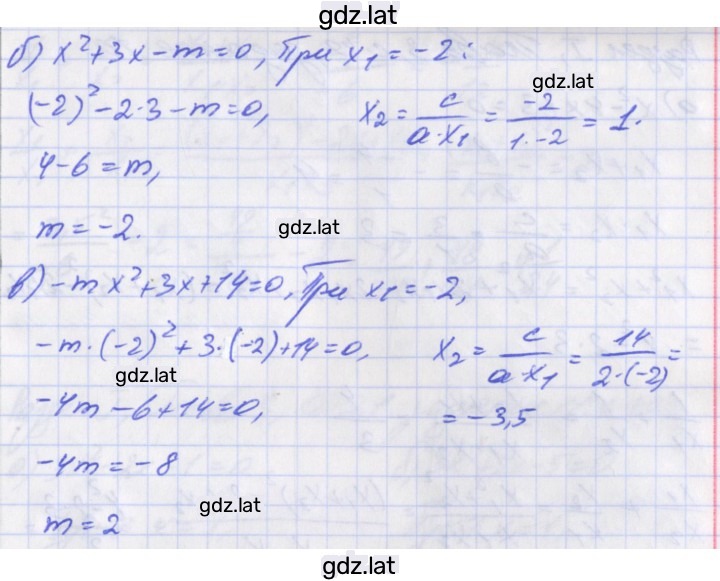 gdz.lat
б) x²+3x-m=0, При x₁=-2:
gdz.lat
(-2)²-2·3-m=0, x₂ = c/(a·x₁) = -2/(1·-2) = 1.
4-6=m,
m=-2.
gdz.lat
в) -mx²+3x+14=0, При x₁=-2,
-m·(-2)²+3·(-2)+14=0, x₂ = c/(a·x₁) = 14/(2·(-2)) =
gdz.lat
-4m-6+14=0, = -3,5
-4m=-8
gdz.lat
m=2
gdz.lat